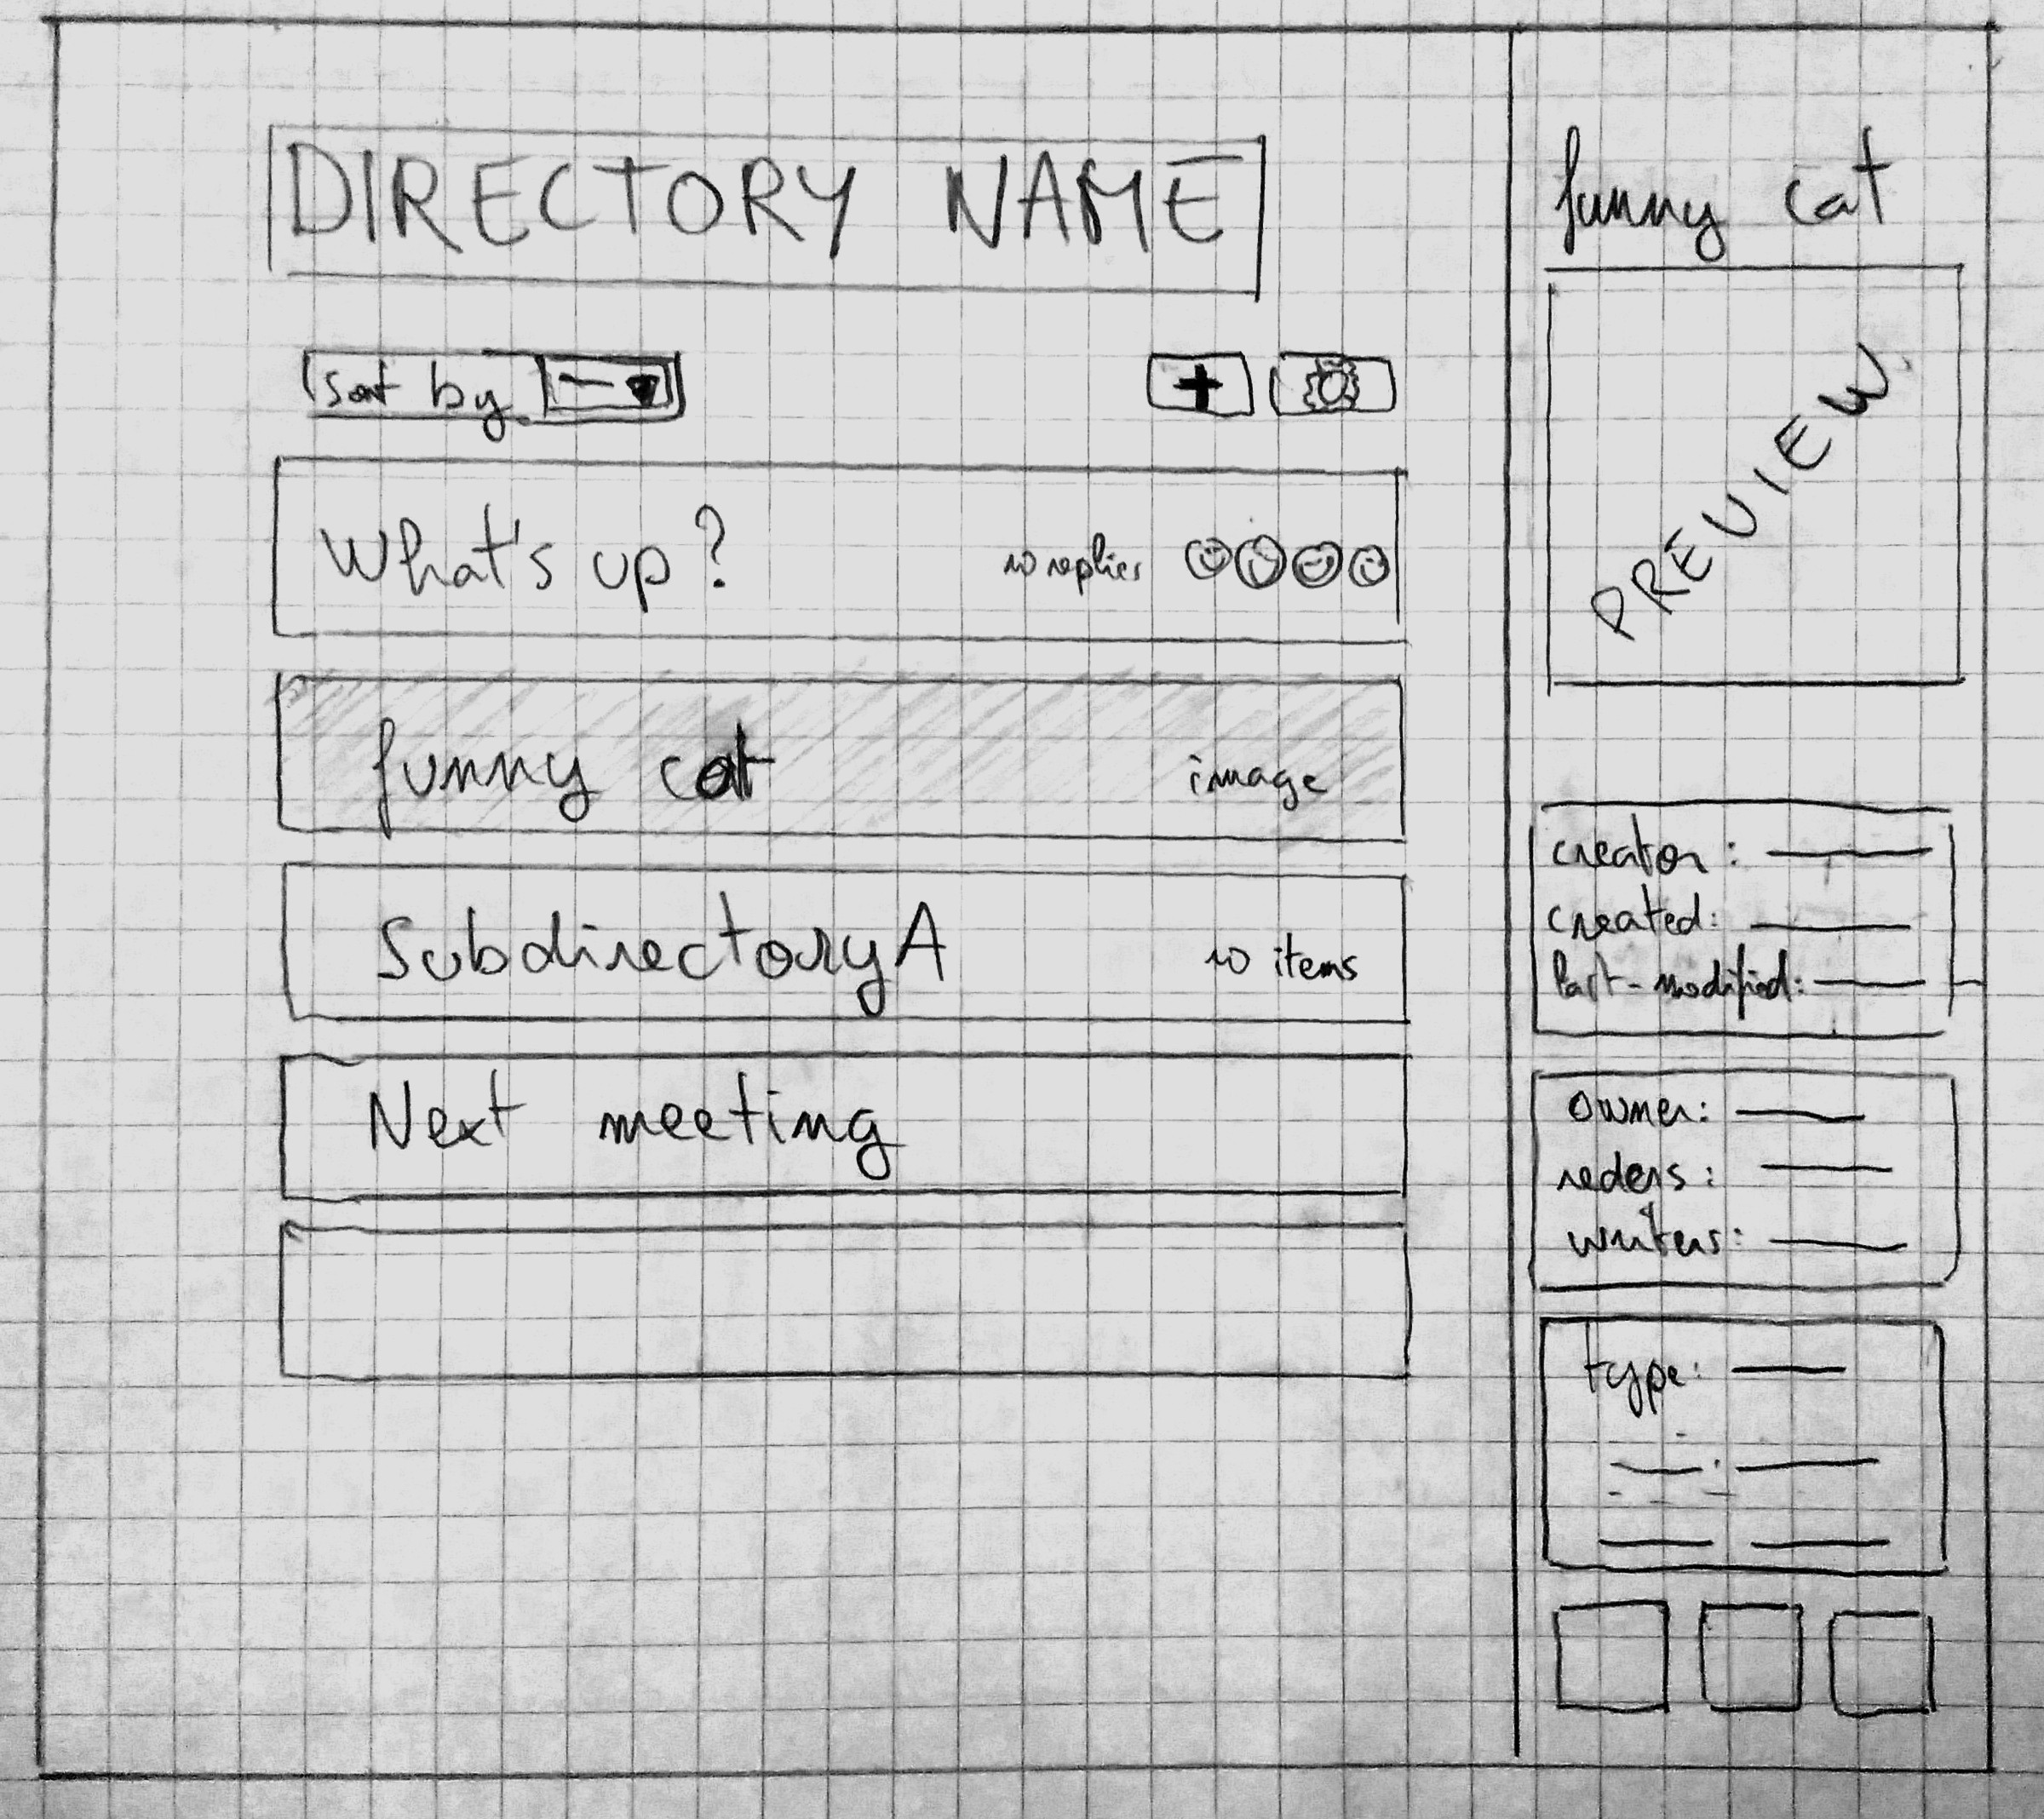 DIRECTORY NAME
sort by
What's up?
10 replies
funny cat
image
Subdirectory A
10 items
Next meeting
funny cat
PREVIEW
creator:
created:
last-modified:
owner:
reders:
writers:
type: